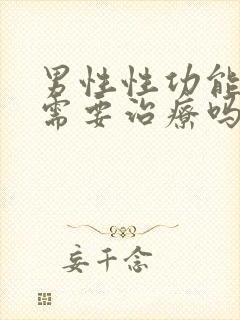 男性性功能
需要治療吗
妄千念